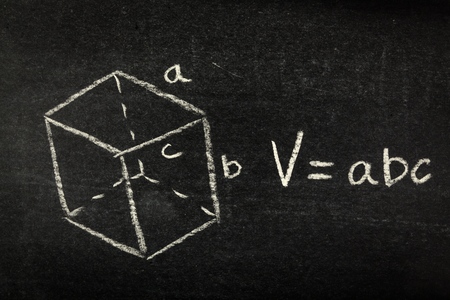 a
c
b
V=abc